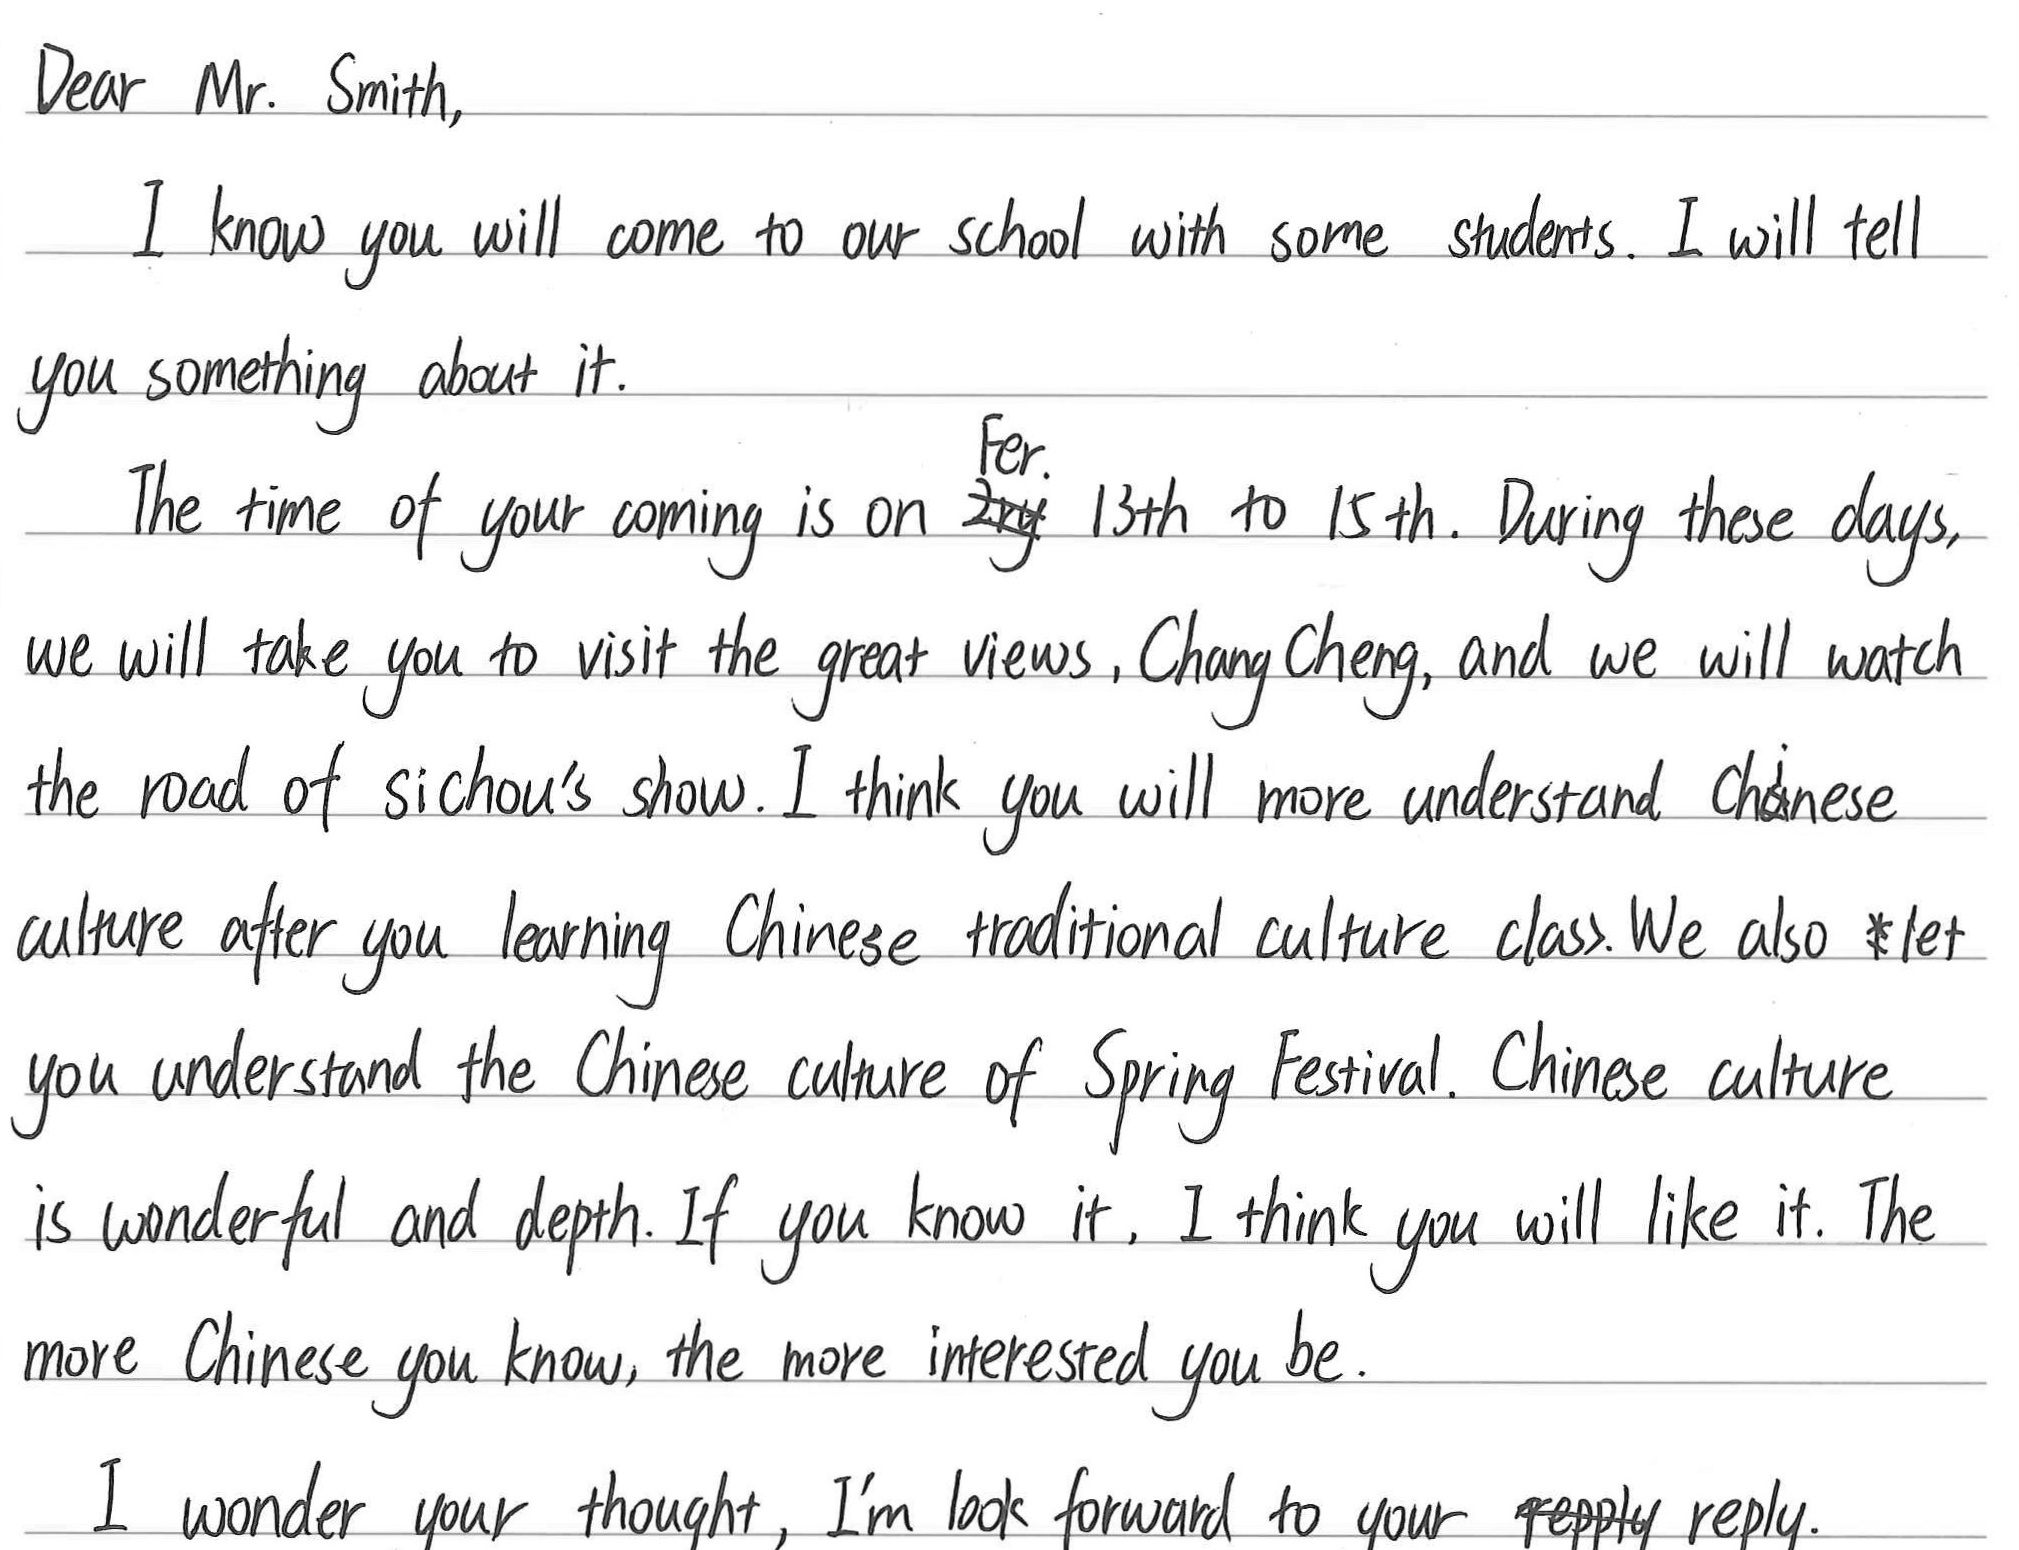 Dear Mr. Smith,
I know you will come to our school with some students. I will tell
you something about it.
The time of your coming is on Fer. 13th to 15th. During these days,
we will take you to visit the great views, Chang Cheng, and we will watch
the road of sichou's show. I think you will more understand Chinese
culture after you learning Chinese traditional culture class. We also let
you understand the Chinese culture of Spring Festival. Chinese culture
is wonderful and depth. If you know it, I think you will like it. The
more Chinese you know, the more interested you be.
I wonder your thought, I'm look forward to your reply.